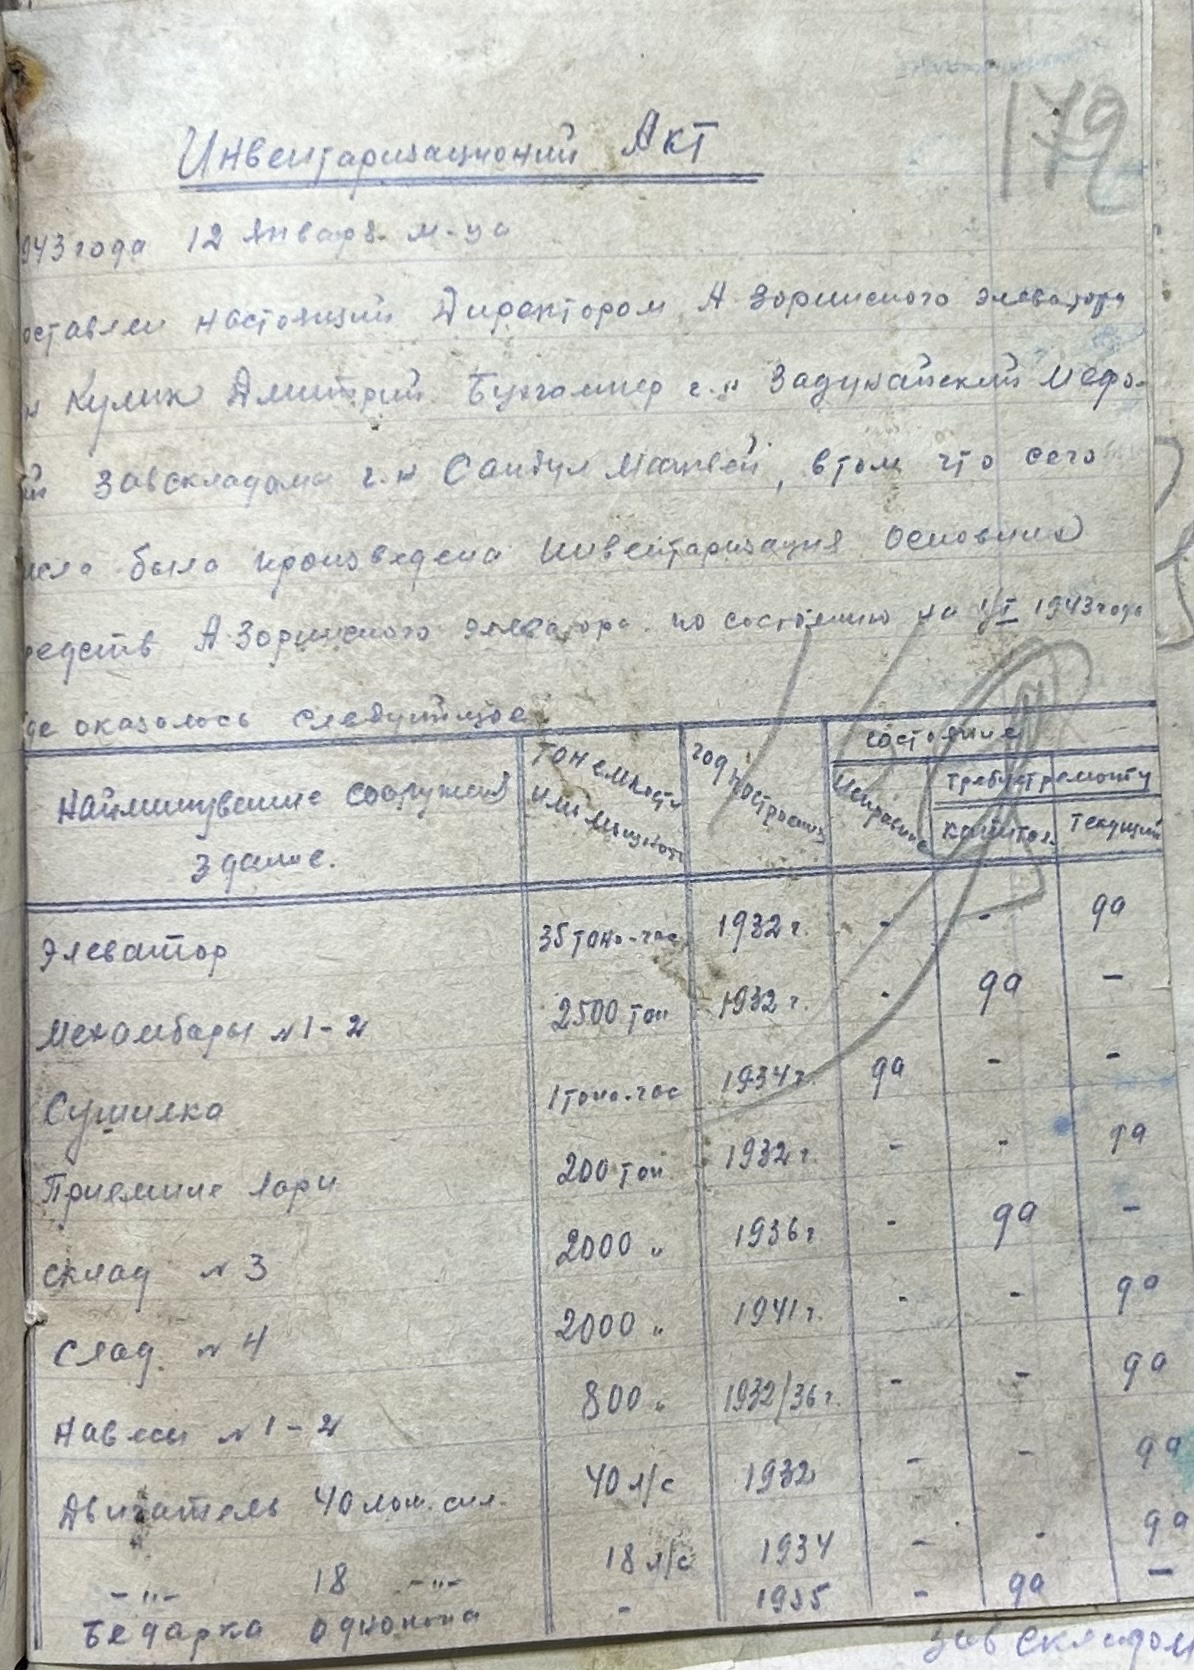 179
Инвентаризационий Акт
943 года 12 Января м-ца
оставлен настоящий Директором А Зоринского элеватора
н Кулик Дмитрий Бухгалтер г.н Задунайский Мефо-
ий Завскладома г.н Сандул Матвей, втом что сего
исла была произведена инвентаризация основних
редств А Зоринского элеватора по состоянию на 1/I 1943 года
де оказалось следуищое
Найминувание сооружений здание. тон емкости или мощност год построения состояние
Исправние требует ремонту
капитал. текущий
Элеватор 35 тонн-час 1932 г. - - да
Мехамбары №1-2 2500 тон 1932 г. - да -
Сушилка 1 тонн-час 1934 г. да - -
Приемние лари 200 тон 1932 г. - - да
склад №3 2000 " 1936 г - да -
Слад №4 2000 " 1941 г. - - да
Навесы №1-2 800 " 1932/36 г. - - да
Двигатель 40 лош. сил. 40 л/с 1932 - - да
-"- 18 -"- 18 л/с 1934 - - да
Бедарка одноконна - 1935 - да -
Зав складом